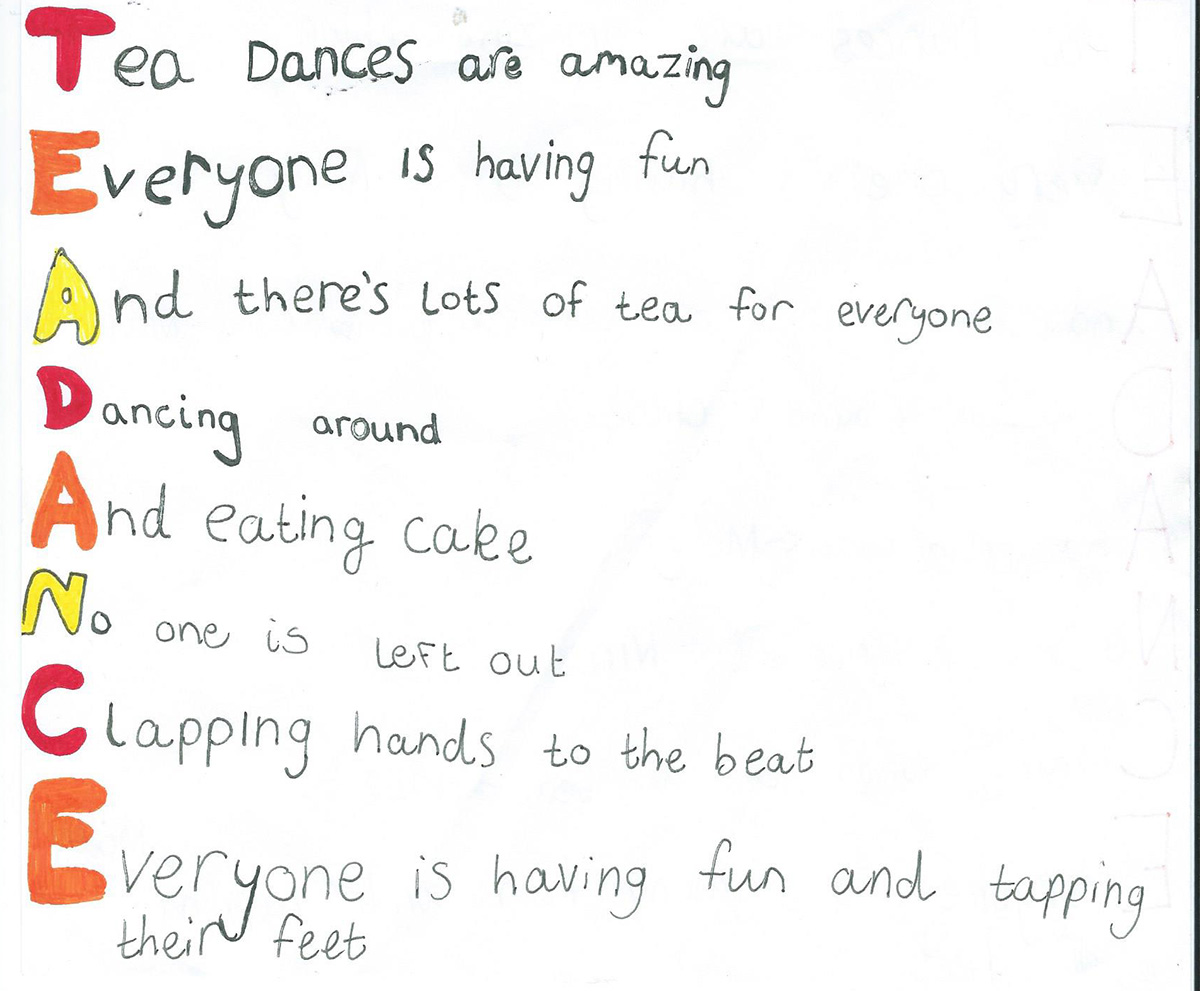 Tea Dances are amazing
Everyone is having fun
And there's lots of tea for everyone
Dancing around
And eating cake
No one is left out
Clapping hands to the beat
Everyone is having fun and tapping
their feet